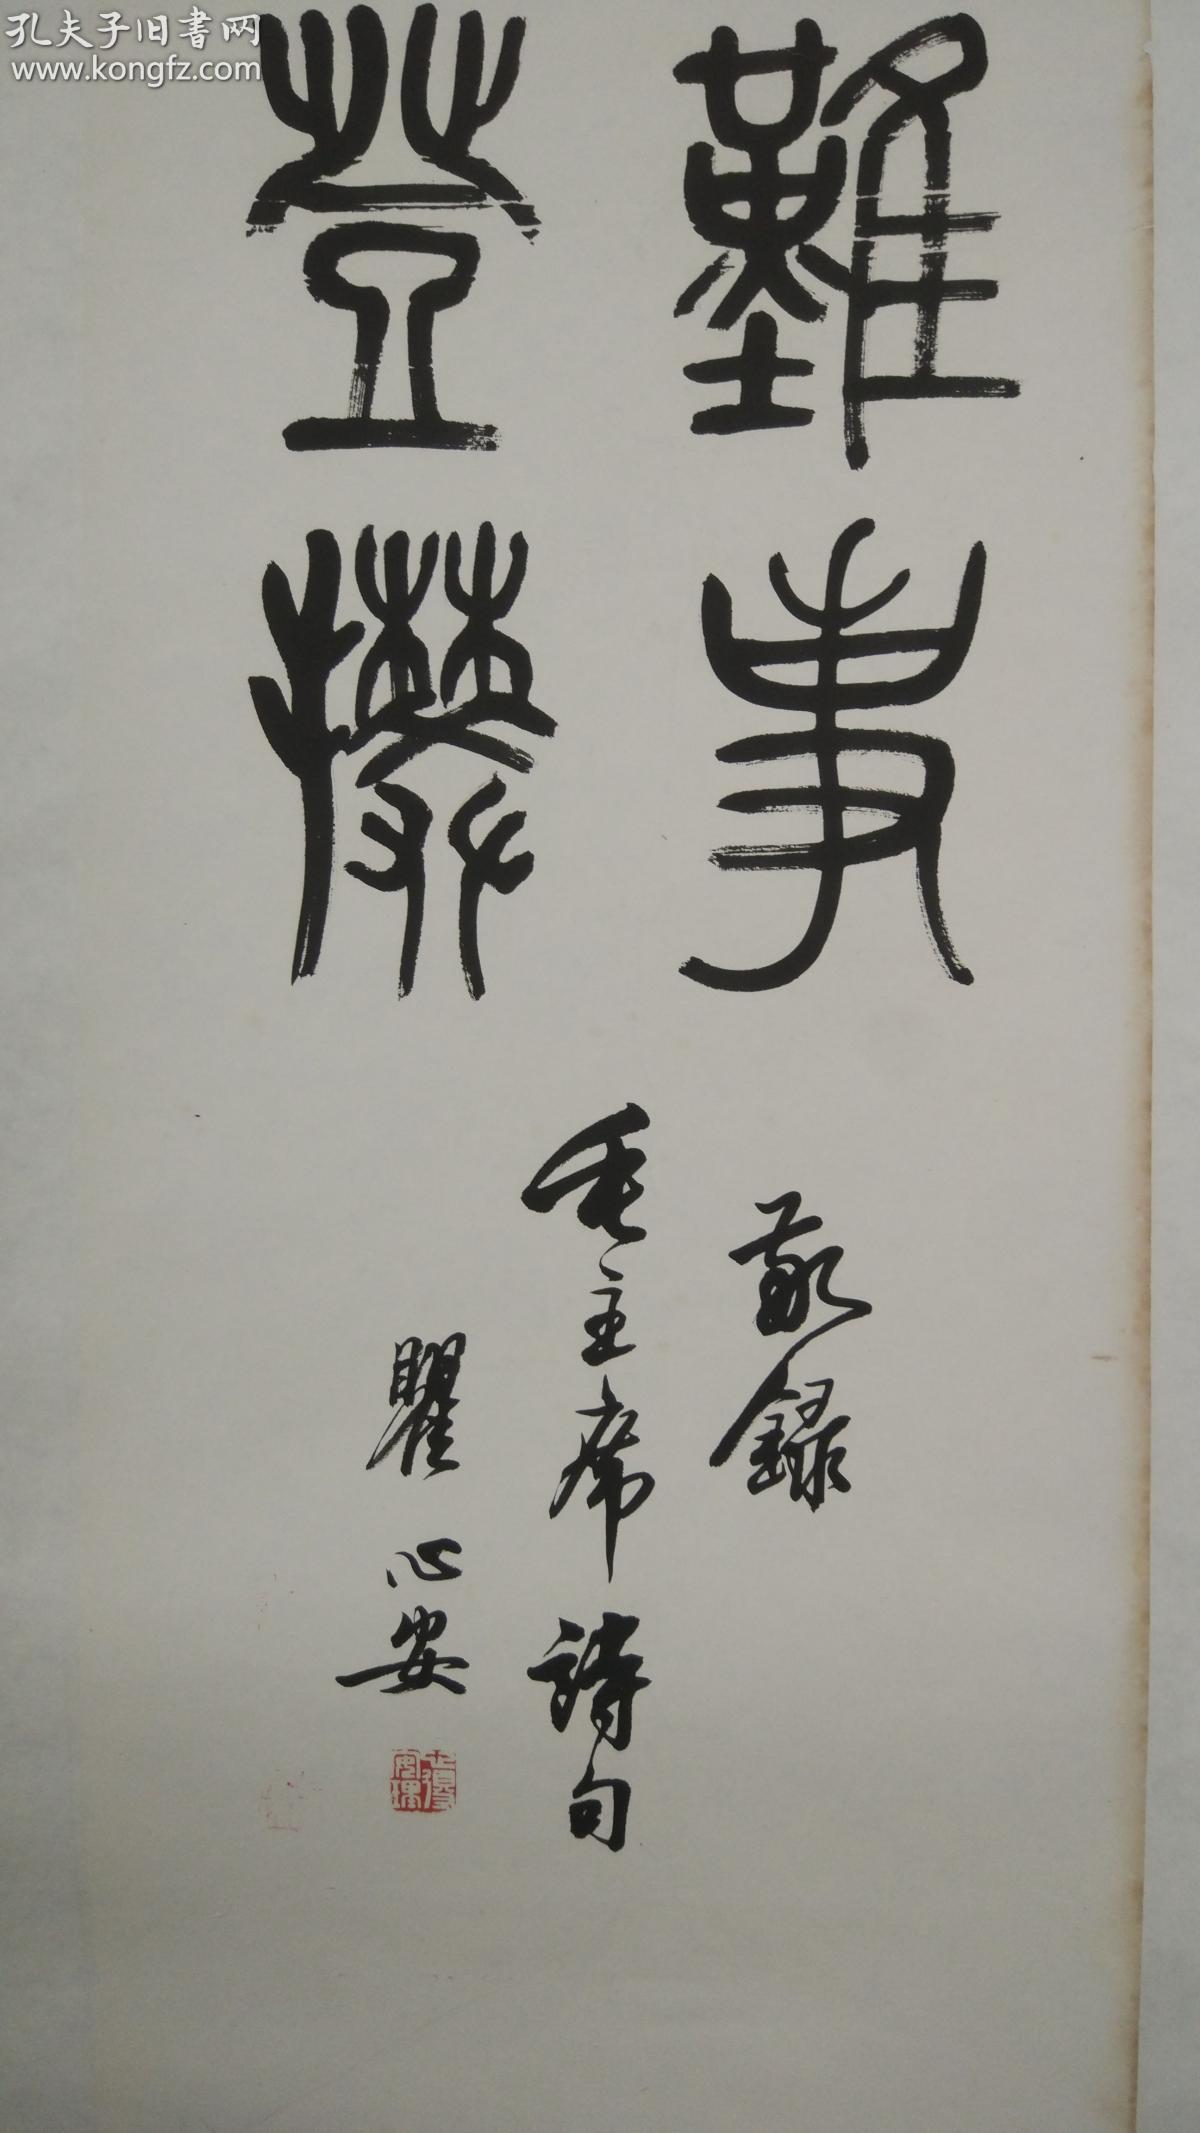 孔夫子旧書网
www.kongfz.com
難事
登攀
敬録
毛主席詩句
瞿心安